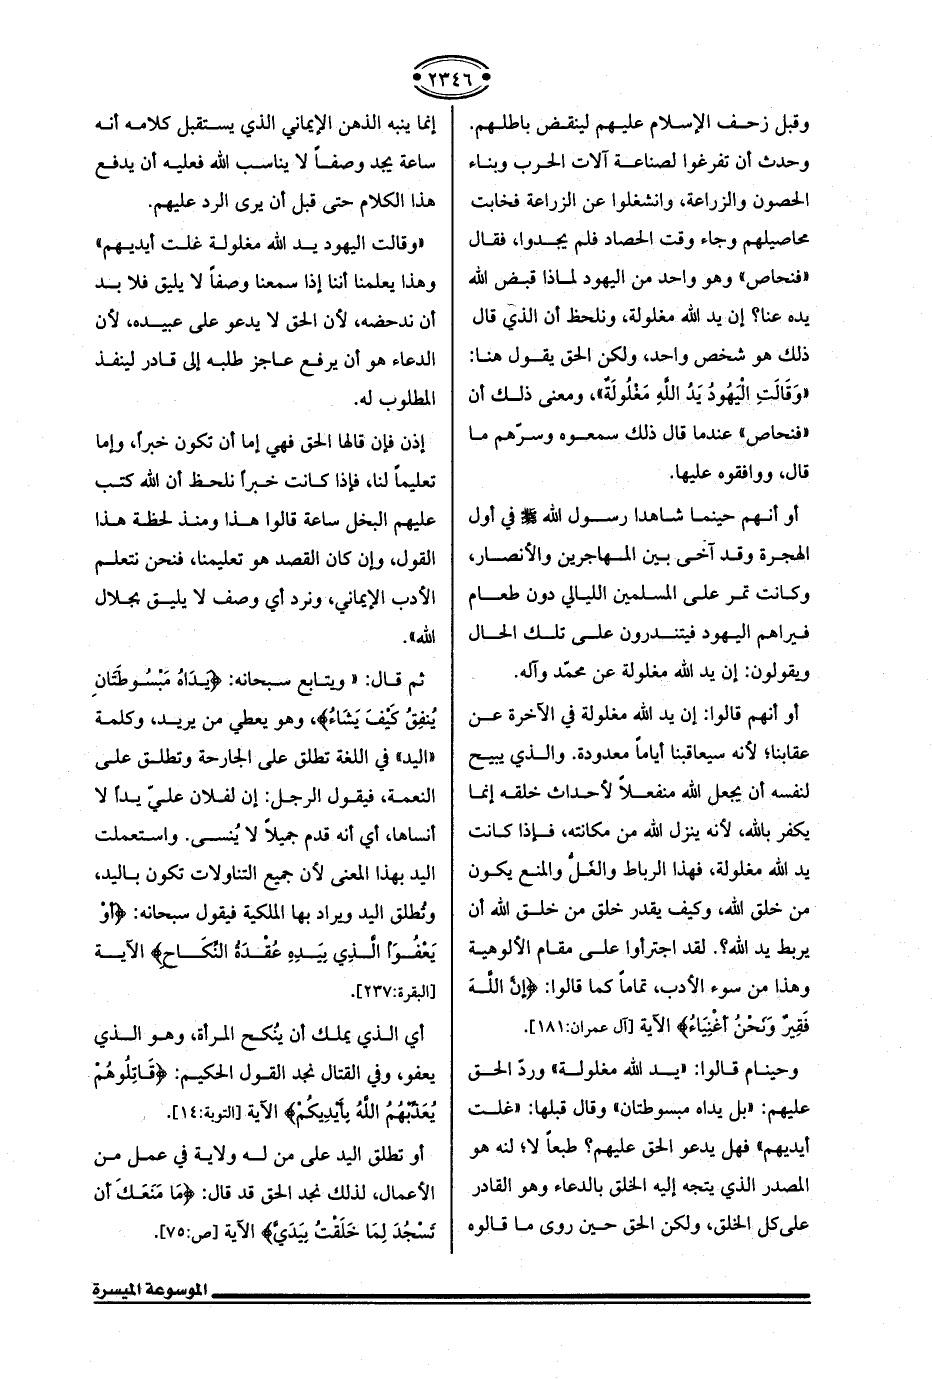 ٢٣٤٦
وقبل زحف الإسلام عليهم لينقض باطلهم.
وحدث أن تفرغوا لصناعة آلات الحرب وبناء
الحصون والزراعة، وانشغلوا عن الزراعة فخابت
محاصيلهم وجاء وقت الحصاد فلم يجدوا، فقال
«فنحاص» وهو واحد من اليهود لماذا قبض الله
يده عنا؟ إن يد الله مغلولة، ونلحظ أن الذي قال
ذلك هو شخص واحد، ولكن الحق يقول هنا:
«وَقَالَتِ الْيَهُودُ يَدُ اللَّهِ مَغْلُولَةٌ»، ومعنى ذلك أن
«فنحاص» عندما قال ذلك سمعوه وسرّهم ما
قال، ووافقوه عليها.
أو أنهم حينما شاهدا رسول الله ﷺ في أول
الهجرة وقد آخى بين المهاجرين والأنصار،
وكانت تمر على المسلمين الليالي دون طعام
فيراهم اليهود فيتندرون على تلك الحال
ويقولون: إن يد الله مغلولة عن محمّد وآله.
أو أنهم قالوا: إن يد الله مغلولة في الآخرة عن
عقابنا؛ لأنه سيعاقبنا أياماً معدودة. والذي يبيح
لنفسه أن يجعل الله منفعلاً لأحداث خلقه إنما
يكفر بالله، لأنه ينزل الله من مكانته، فإذا كانت
يد الله مغلولة، فهذا الرباط والغَلُّ والمنع يكون
من خلق الله، وكيف يقدر خلق من خلق الله أن
يربط يد الله؟. لقد اجترأوا على مقام الألوهية
وهذا من سوء الأدب، تماماً كما قالوا: ﴿إِنَّ اللَّهَ
فَقِيرٌ وَنَحْنُ أَغْنِيَاءُ﴾ الآية [آل عمران:١٨١].
وحينام قالوا: «يد الله مغلولة» وردّ الحق
عليهم: «بل يداه مبسوطتان» وقال قبلها: «غلت
أيديهم» فهل يدعو الحق عليهم؟ طبعاً لا؛ لنه هو
المصدر الذي يتجه إليه الخلق بالدعاء وهو القادر
على كل الخلق، ولكن الحق حين روى ما قالوه
إنما ينبه الذهن الإيماني الذي يستقبل كلامه أنه
ساعة يجد وصفاً لا يناسب الله فعليه أن يدفع
هذا الكلام حتى قبل أن يرى الرد عليهم.
«وقالت اليهود يد الله مغلولة غلت أيديهم»
وهذا يعلمنا أننا إذا سمعنا وصفاً لا يليق فلا بد
أن ندحضه، لأن الحق لا يدعو على عبيده، لأن
الدعاء هو أن يرفع عاجز طلبه إلى قادر لينفذ
المطلوب له.
إذن فإن قالها الحق فهي إما أن تكون خبراً، وإما
تعليماً لنا، فإذا كانت خبراً نلحظ أن الله كتب
عليهم البخل ساعة قالوا هذا ومنذ لحظة هذا
القول، وإن كان القصد هو تعليمنا، فنحن نتعلم
الأدب الإيماني، ونرد أي وصف لا يليق بجلال
الله».
ثم قال: « ويتابع سبحانه: ﴿يَدَاهُ مَبْسُوطَتَانِ
يُنفِقُ كَيْفَ يَشَاءُ﴾، وهو يعطي من يريد، وكلمة
«اليد» في اللغة تطلق على الجارحة وتطلق على
النعمة، فيقول الرجل: إن لفلان عليّ يداً لا
أنساها، أي أنه قدم جميلاً لا يُنسى. واستعملت
اليد بهذا المعنى لأن جميع التناولات تكون باليد،
وتُطلق اليد ويراد بها الملكية فيقول سبحانه: ﴿أَوْ
يَعْفُوَا الَّذِي بِيَدِهِ عُقْدَةُ النِّكَاحِ﴾ الآية
[البقرة:٢٣٧].
أي الذي يملك أن يُنكح المرأة، وهو الذي
يعفو، وفي القتال نجد القول الحكيم: ﴿قَاتِلُوهُمْ
يُعَذِّبْهُمُ اللَّهُ بِأَيْدِيكُمْ﴾ الآية [التوبة:١٤].
أو تطلق اليد على من له ولاية في عمل من
الأعمال، لذلك نجد الحق قد قال: ﴿مَا مَنَعَكَ أَن
تَسْجُدَ لِمَا خَلَقْتُ بِيَدَيَّ﴾ الآية [ص:٧٥].
الموسوعة الميسرة